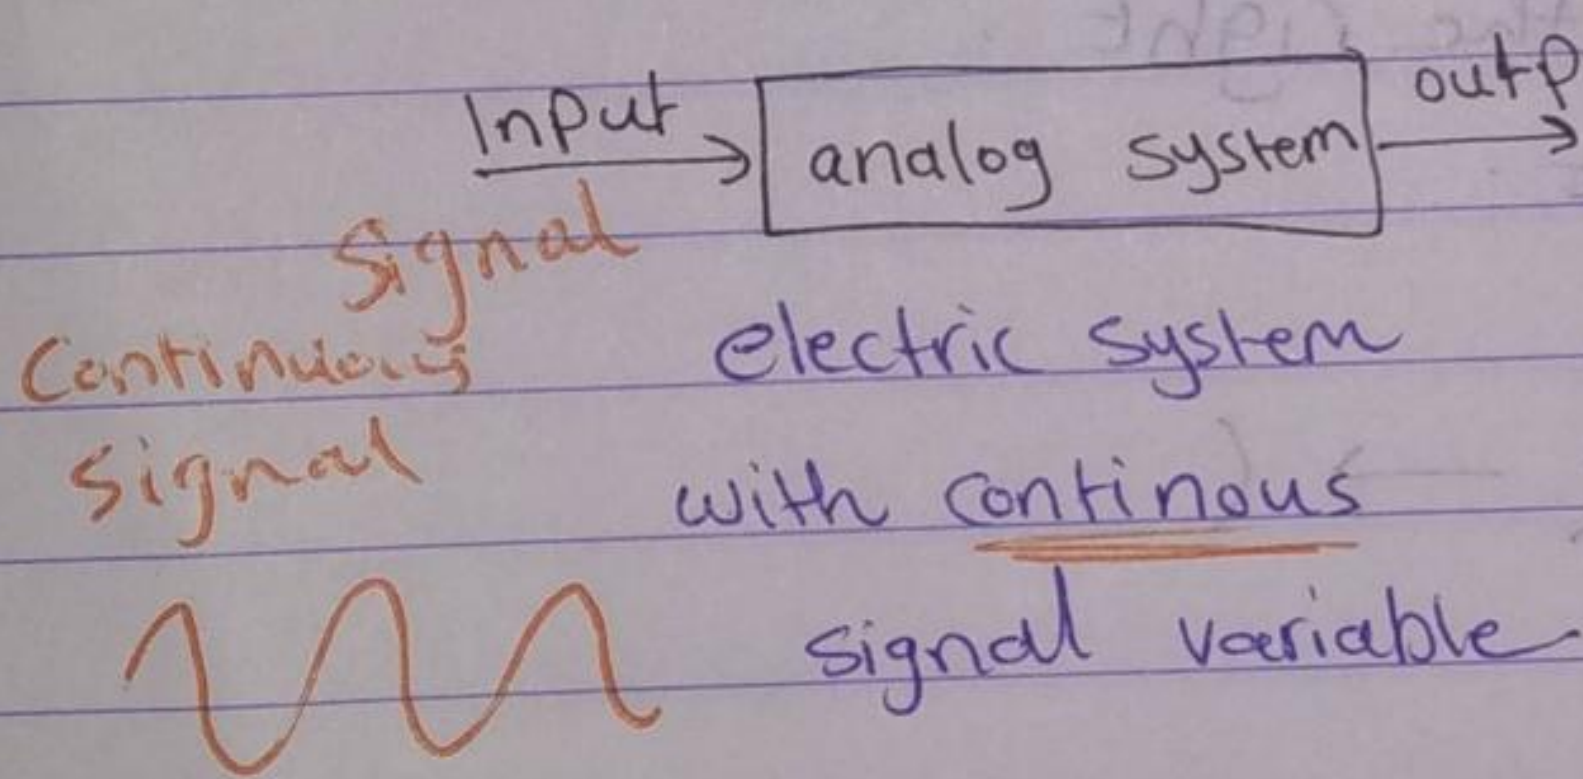 Input
analog system
outp
Signal
Continuous
signal
electric system
with continous
signal variable